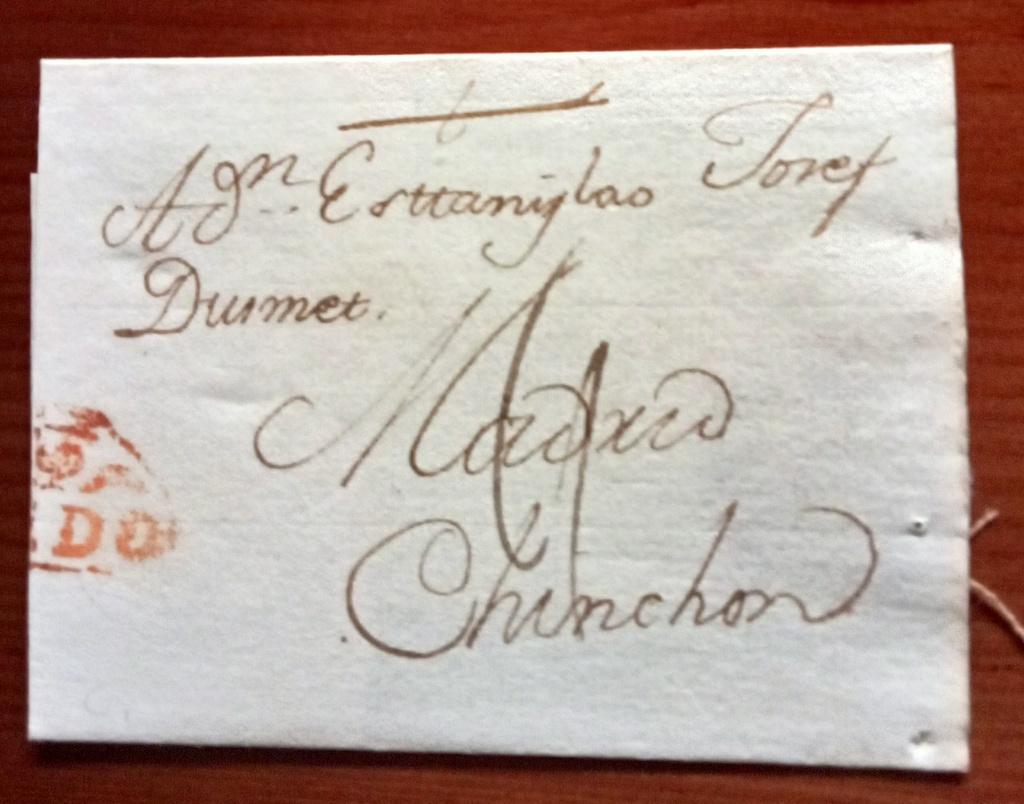 A Dn. Esttanislao Josef
Dusmet.
Madrid
Chinchon
DO